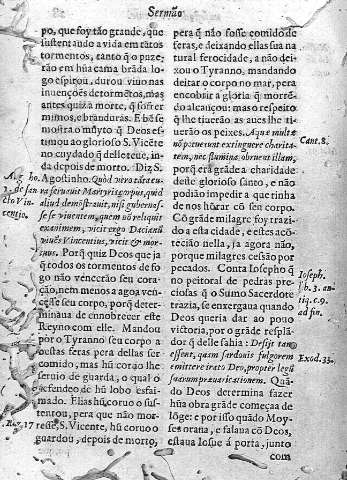 Sermão
po, que foy tão grande, que
sustentando a vida em tãtos
tormentos, tanto q̃ o puze-
rão em hũa cama brãda lo-
go espirou, durou viuo nas
inuenções de tormẽtos, mas
antes quiz a morte, q̃ sofrer
mimos, e brãduras. E bẽ se
mostra o muyto q̃ Deos es-
timou ao glorioso S. Vicẽte
no cuydado q̃ delle teue, in-
da depois de morto. Diz S.
Agostinho. Quid vero
seruauit Martyris corpus, quid
aliud demõstrauit, nisi guberna-
se se viuentem, quem nò reliquit
exanimem, vicit ergo Dacianũ
viuẽs Vincentius, vicit & mor-
tuus. Porq̃ quiz Deos que ja
q̃ todos os tormentos de fo-
go não vencerão seu cora-
ção, nem menos a agoa ven-
cesse seu corpo, porq̃ deter-
minaua de ennobrecer este
Reyno com elle. Mandou
por o Tyranno seu corpo a
outras feras pera dellas ser
comido, mas hũ coruo lhe
seruio de guarda, o qual o
defendeo de hũ lobo esfai-
mado. Elias hũ coruo o sus-
tentou, pera que não mor-
resse, S. Vicente, hũ coruo o
guardou, depois de morto,
Reg. 17
pera q̃ não fosse comido de
feras, e deixando ellas sua na
tural ferocidade, a não dei-
xou o Tyranno, mandando
deitar o corpo no mar, pera
encobrir a gloria q̃ morrẽ-
do alcançou: mas o respeito
q̃ lhe tiuerão as aues lhe ti-
uerão os peixes. Aquæ multæ
nò potuerunt extinguere charita-
tem, nec flumina obruent illam,
porq̃ era grãde a charidade
deste glorioso santo, e não
podião impedir a que tinha
de nos hõrar cõ seu corpo.
Cõ grãde milagre foy trazi-
do a esta cidade, e estes acõ-
tecião nella, ja agora não,
porque milagres cessão por
peccados. Conta Iosepho q̃
no peitoral de pedras pre-
ciosas q̃ o Sumo Sacerdote
trazia, se enxergaua quando
Deos queria dar ao pouo
victoria, por o grãde resplã-
dor q̃ delle sahia: Desijt tam
essent, quam sardonis fulgorem
emittere irato Deo, propter legũ
suarum præuaricationem. Quã-
do Deos determina fazer
hũa obra grãde começaa de
lõge: e por isso quãdo Moy-
ses oraua, e falaua cõ Deos,
estaua Iosue á porta, junto
com
Cant. 8.
Ioseph.
lib. 3. an-
tiq. c. 9.
ad fin.
Exod. 33.